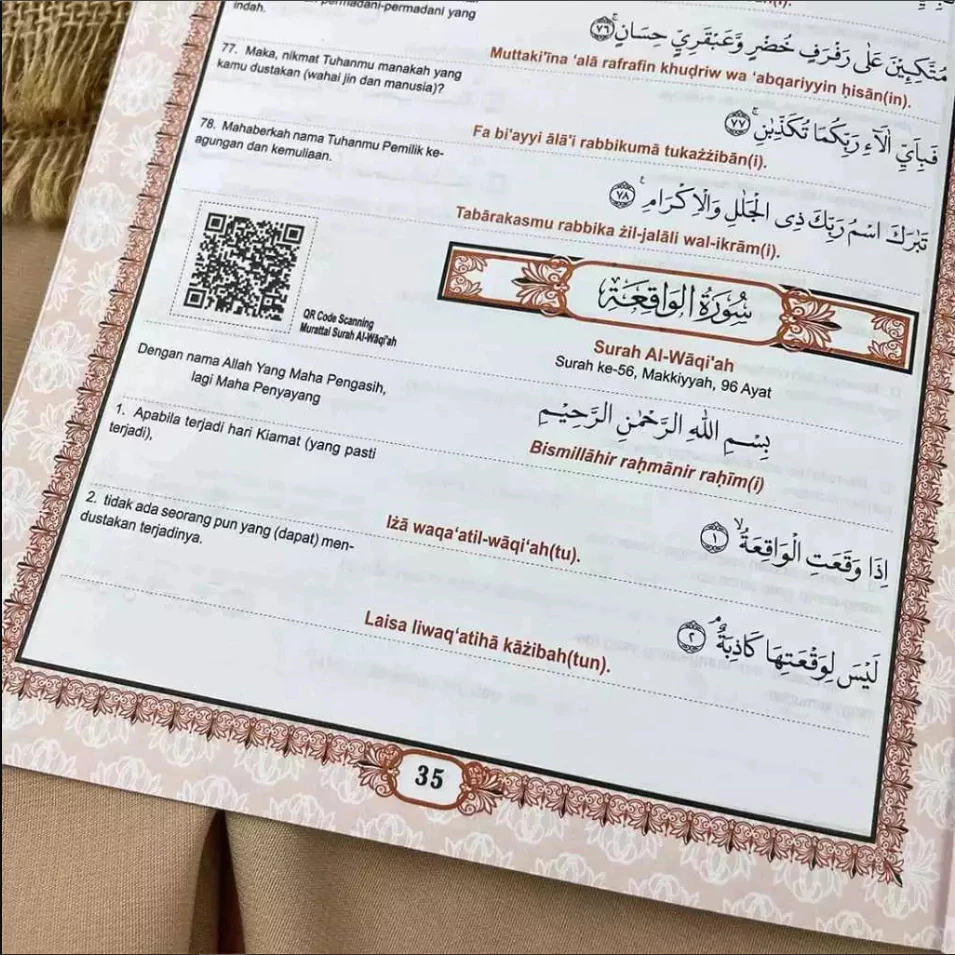 permadani-permadani yang
indah.
مُتَّكِـِٕيْنَ عَلٰى رَفْرَفٍ خُضْرٍ وَّعَبْقَرِيٍّ حِسَانٍۚ ۝٧٦
Muttaki'īna ‘alā rafrafin khuḍriw wa ‘abqariyyin ḥisān(in).
77. Maka, nikmat Tuhanmu manakah yang
kamu dustakan (wahai jin dan manusia)?
فَبِاَيِّ اٰلَاۤءِ رَبِّكُمَا تُكَذِّبٰنِۚ ۝٧٧
Fa bi'ayyi ālā'i rabbikumā tukażżibān(i).
78. Mahaberkah nama Tuhanmu Pemilik ke-
agungan dan kemuliaan.
تَبٰرَكَ اسْمُ رَبِّكَ ذِى الْجَلٰلِ وَالْاِكْرَامِࣖ ۝٧٨
Tabārakasmu rabbika żil-jalāli wal-ikrām(i).
QR Code Scanning
Murattal Surah Al-Wāqi'ah
سُوْرَةُ الوَاقِعَةِ
Surah Al-Wāqi'ah
Surah ke-56, Makkiyyah, 96 Ayat
Dengan nama Allah Yang Maha Pengasih,
lagi Maha Penyayang
بِسْمِ اللّٰهِ الرَّحْمٰنِ الرَّحِيْمِ
Bismillāhir raḥmānir raḥīm(i)
1. Apabila terjadi hari Kiamat (yang pasti
terjadi),
اِذَا وَقَعَتِ الْوَاقِعَةُۙ ۝١
Iżā waqa‘atil-wāqi‘ah(tu).
2. tidak ada seorang pun yang (dapat) men-
dustakan terjadinya.
لَيْسَ لِوَقْعَتِهَا كَاذِبَةٌۘ ۝٢
Laisa liwaq‘atihā kāżibah(tun).
35